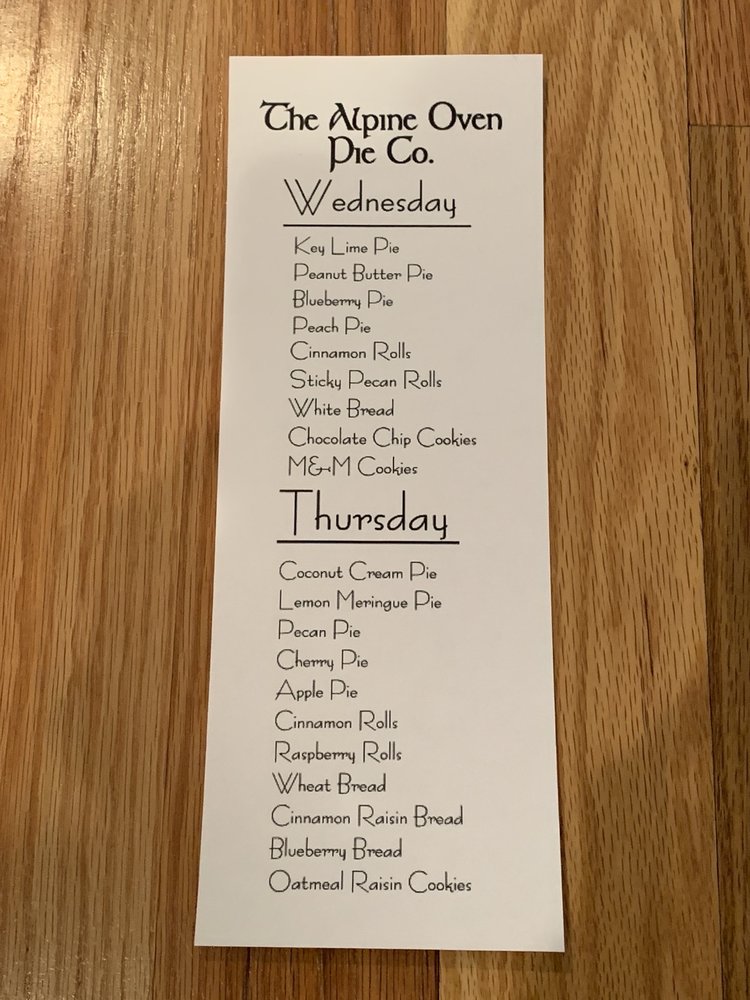 The Alpine Oven
Pie Co.
Wednesday
Key Lime Pie
Peanut Butter Pie
Blueberry Pie
Peach Pie
Cinnamon Rolls
Sticky Pecan Rolls
White Bread
Chocolate Chip Cookies
M&M Cookies
Thursday
Coconut Cream Pie
Lemon Meringue Pie
Pecan Pie
Cherry Pie
Apple Pie
Cinnamon Rolls
Raspberry Rolls
Wheat Bread
Cinnamon Raisin Bread
Blueberry Bread
Oatmeal Raisin Cookies